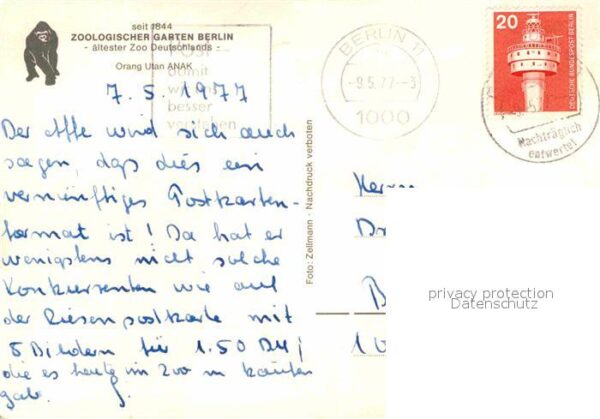 seit 1844
ZOOLOGISCHER GARTEN BERLIN
- ältester Zoo Deutschlands -
Orang Utan ANAK
Post
damit
besser
verstehen
BERLIN 11
-9.5.77.-3
1000
20
DEUTSCHE BUNDESPOST BERLIN
Nachträglich
entwertet
7.5.1977
Der Affe wird sich auch
sagen, daß dies ein
vernünftiges Postkarten-
format ist! Da hat er
wenigstens nicht solche
Konkurrenten wie auf
der Riesenpostkarte mit
5 Bildern für 1.50 DM,
die es heute im Zoo zu kaufen
gab.
Foto: Zellmann · Nachdruck verboten
Herrn
Dr
B
10
privacy protection
Datenschutz